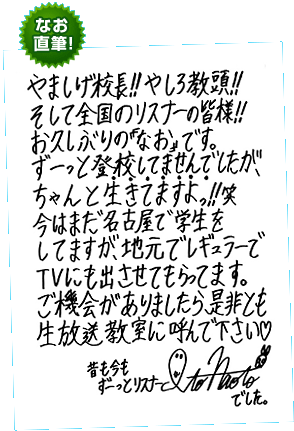 なお
直筆!
やましげ校長!! やしろ教頭!!
そして全国のリスナーの皆様!!
お久しぶりの『なお』です。
ずーっと登校してませんでしたが、
ちゃんと生きてますよっ!! 笑
今はまだ名古屋で学生を
してますが、地元でレギュラーで
TVにも出させてもらってます。
ご機会がありましたら、是非とも
生放送教室に呼んで下さい♡
昔も今も
ずーっとリスナー
Ito Naoto
でした。